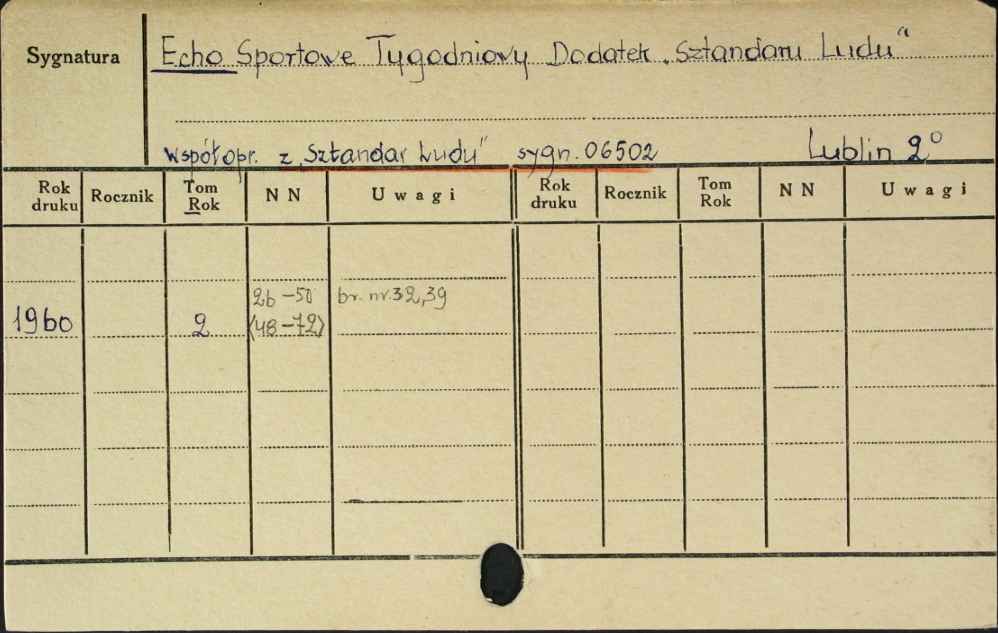 Sygnatura
Echo Sportowe Tygodniowy Dodatek „Sztandaru Ludu"
współopr. z „Sztandar Ludu" sygn. 06502 Lublin 2°
Rok druku Rocznik Tom Rok NN Uwagi Rok druku Rocznik Tom Rok NN Uwagi
26-50 br. nr. 32, 39
1960 2 (48-72)